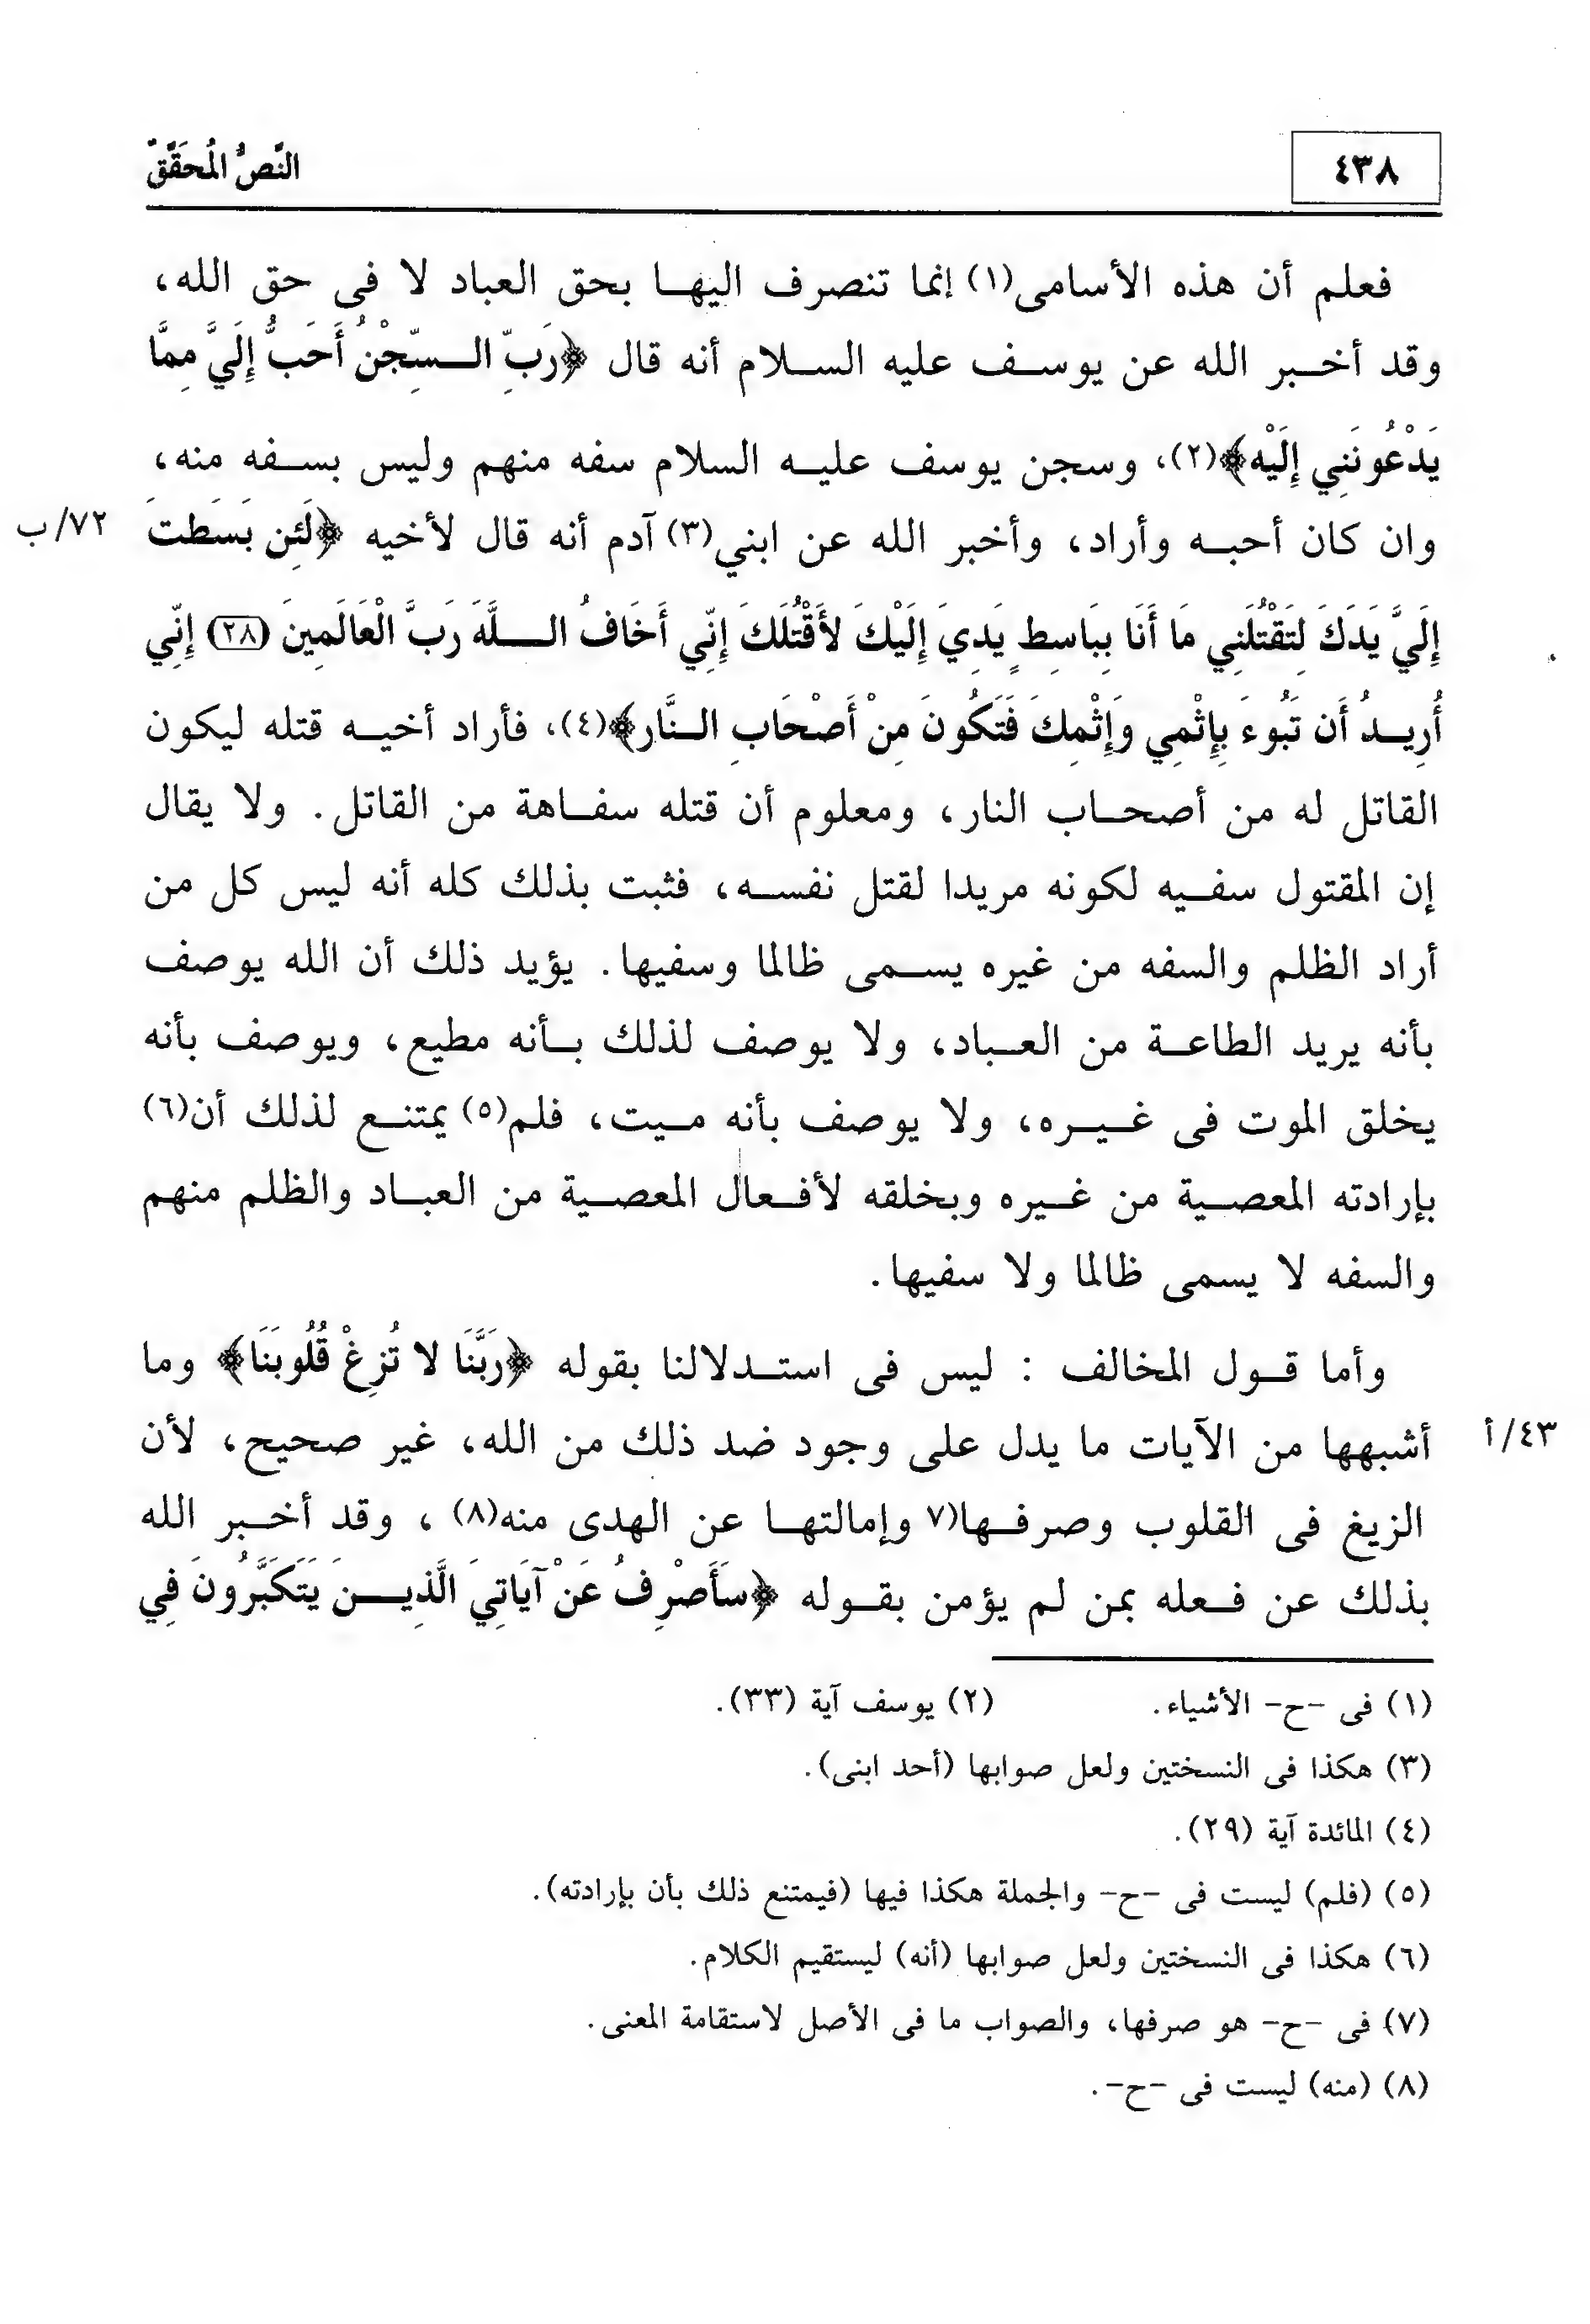 ٤٣٨
النَّصُّ المُحَقَّقّ
فعلم أن هذه الأسامى(١) إنما تنصرف اليها بحق العباد لا فى حق الله،
وقد أخبر الله عن يوسف عليه السلام أنه قال ﴿رَبِّ السِّجْنُ أَحَبُّ إِلَيَّ مِمَّا
يَدْعُونَنِي إِلَيْه﴾(٢)، وسجن يوسف عليه السلام سفه منهم وليس بسفه منه،
وان كان أحبه وأراد، وأخبر الله عن ابني(٣) آدم أنه قال لأخيه ﴿لَئِن بَسَطتَ
٧٢/ب
إِلَيَّ يَدَكَ لِتَقْتُلَنِي مَا أَنَا بِبَاسِطٍ يَدِيَ إِلَيْكَ لأَقْتُلَكَ إِنِّي أَخَافُ اللَّهَ رَبَّ الْعَالَمِينَ (٢٨) إِنِّي
أُرِيدُ أَن تَبُوءَ بِإِثْمِي وَإِثْمِكَ فَتَكُونَ مِنْ أَصْحَابِ النَّار﴾(٤)، فأراد أخيه قتله ليكون
القاتل له من أصحاب النار، ومعلوم أن قتله سفاهة من القاتل. ولا يقال
إن المقتول سفيه لكونه مريدا لقتل نفسه، فثبت بذلك كله أنه ليس كل من
أراد الظلم والسفه من غيره يسمى ظالما وسفيها. يؤيد ذلك أن الله يوصف
بأنه يريد الطاعة من العباد، ولا يوصف لذلك بأنه مطيع، ويوصف بأنه
يخلق الموت فى غيره، ولا يوصف بأنه ميت، فلم(٥) يمتنع لذلك أن(٦)
بإرادته المعصية من غيره وبخلقه لأفعال المعصية من العباد والظلم منهم
والسفه لا يسمى ظالما ولا سفيها.
وأما قول المخالف : ليس فى استدلالنا بقوله ﴿رَبَّنَا لا تُزِغْ قُلُوبَنَا﴾ وما
٤٣/أ
أشبهها من الآيات ما يدل على وجود ضد ذلك من الله، غير صحيح، لأن
الزيغ فى القلوب وصرفها(٧ وإمالتها عن الهدى منه(٨) ، وقد أخبر الله
بذلك عن فعله بمن لم يؤمن بقوله ﴿سَأَصْرِفُ عَنْ آيَاتِيَ الَّذِينَ يَتَكَبَّرُونَ فِي
(١) فى -ح- الأشياء. (٢) يوسف آية (٣٣).
(٣) هكذا فى النسختين ولعل صوابها (أحد ابنى).
(٤) المائدة آية (٢٩).
(٥) (فلم) ليست فى -ح- والجملة هكذا فيها (فيمتنع ذلك بأن بإرادته).
(٦) هكذا فى النسختين ولعل صوابها (أنه) ليستقيم الكلام.
(٧) فى -ح- هو صرفها، والصواب ما فى الأصل لاستقامة المعنى.
(٨) (منه) ليست فى -ح-.